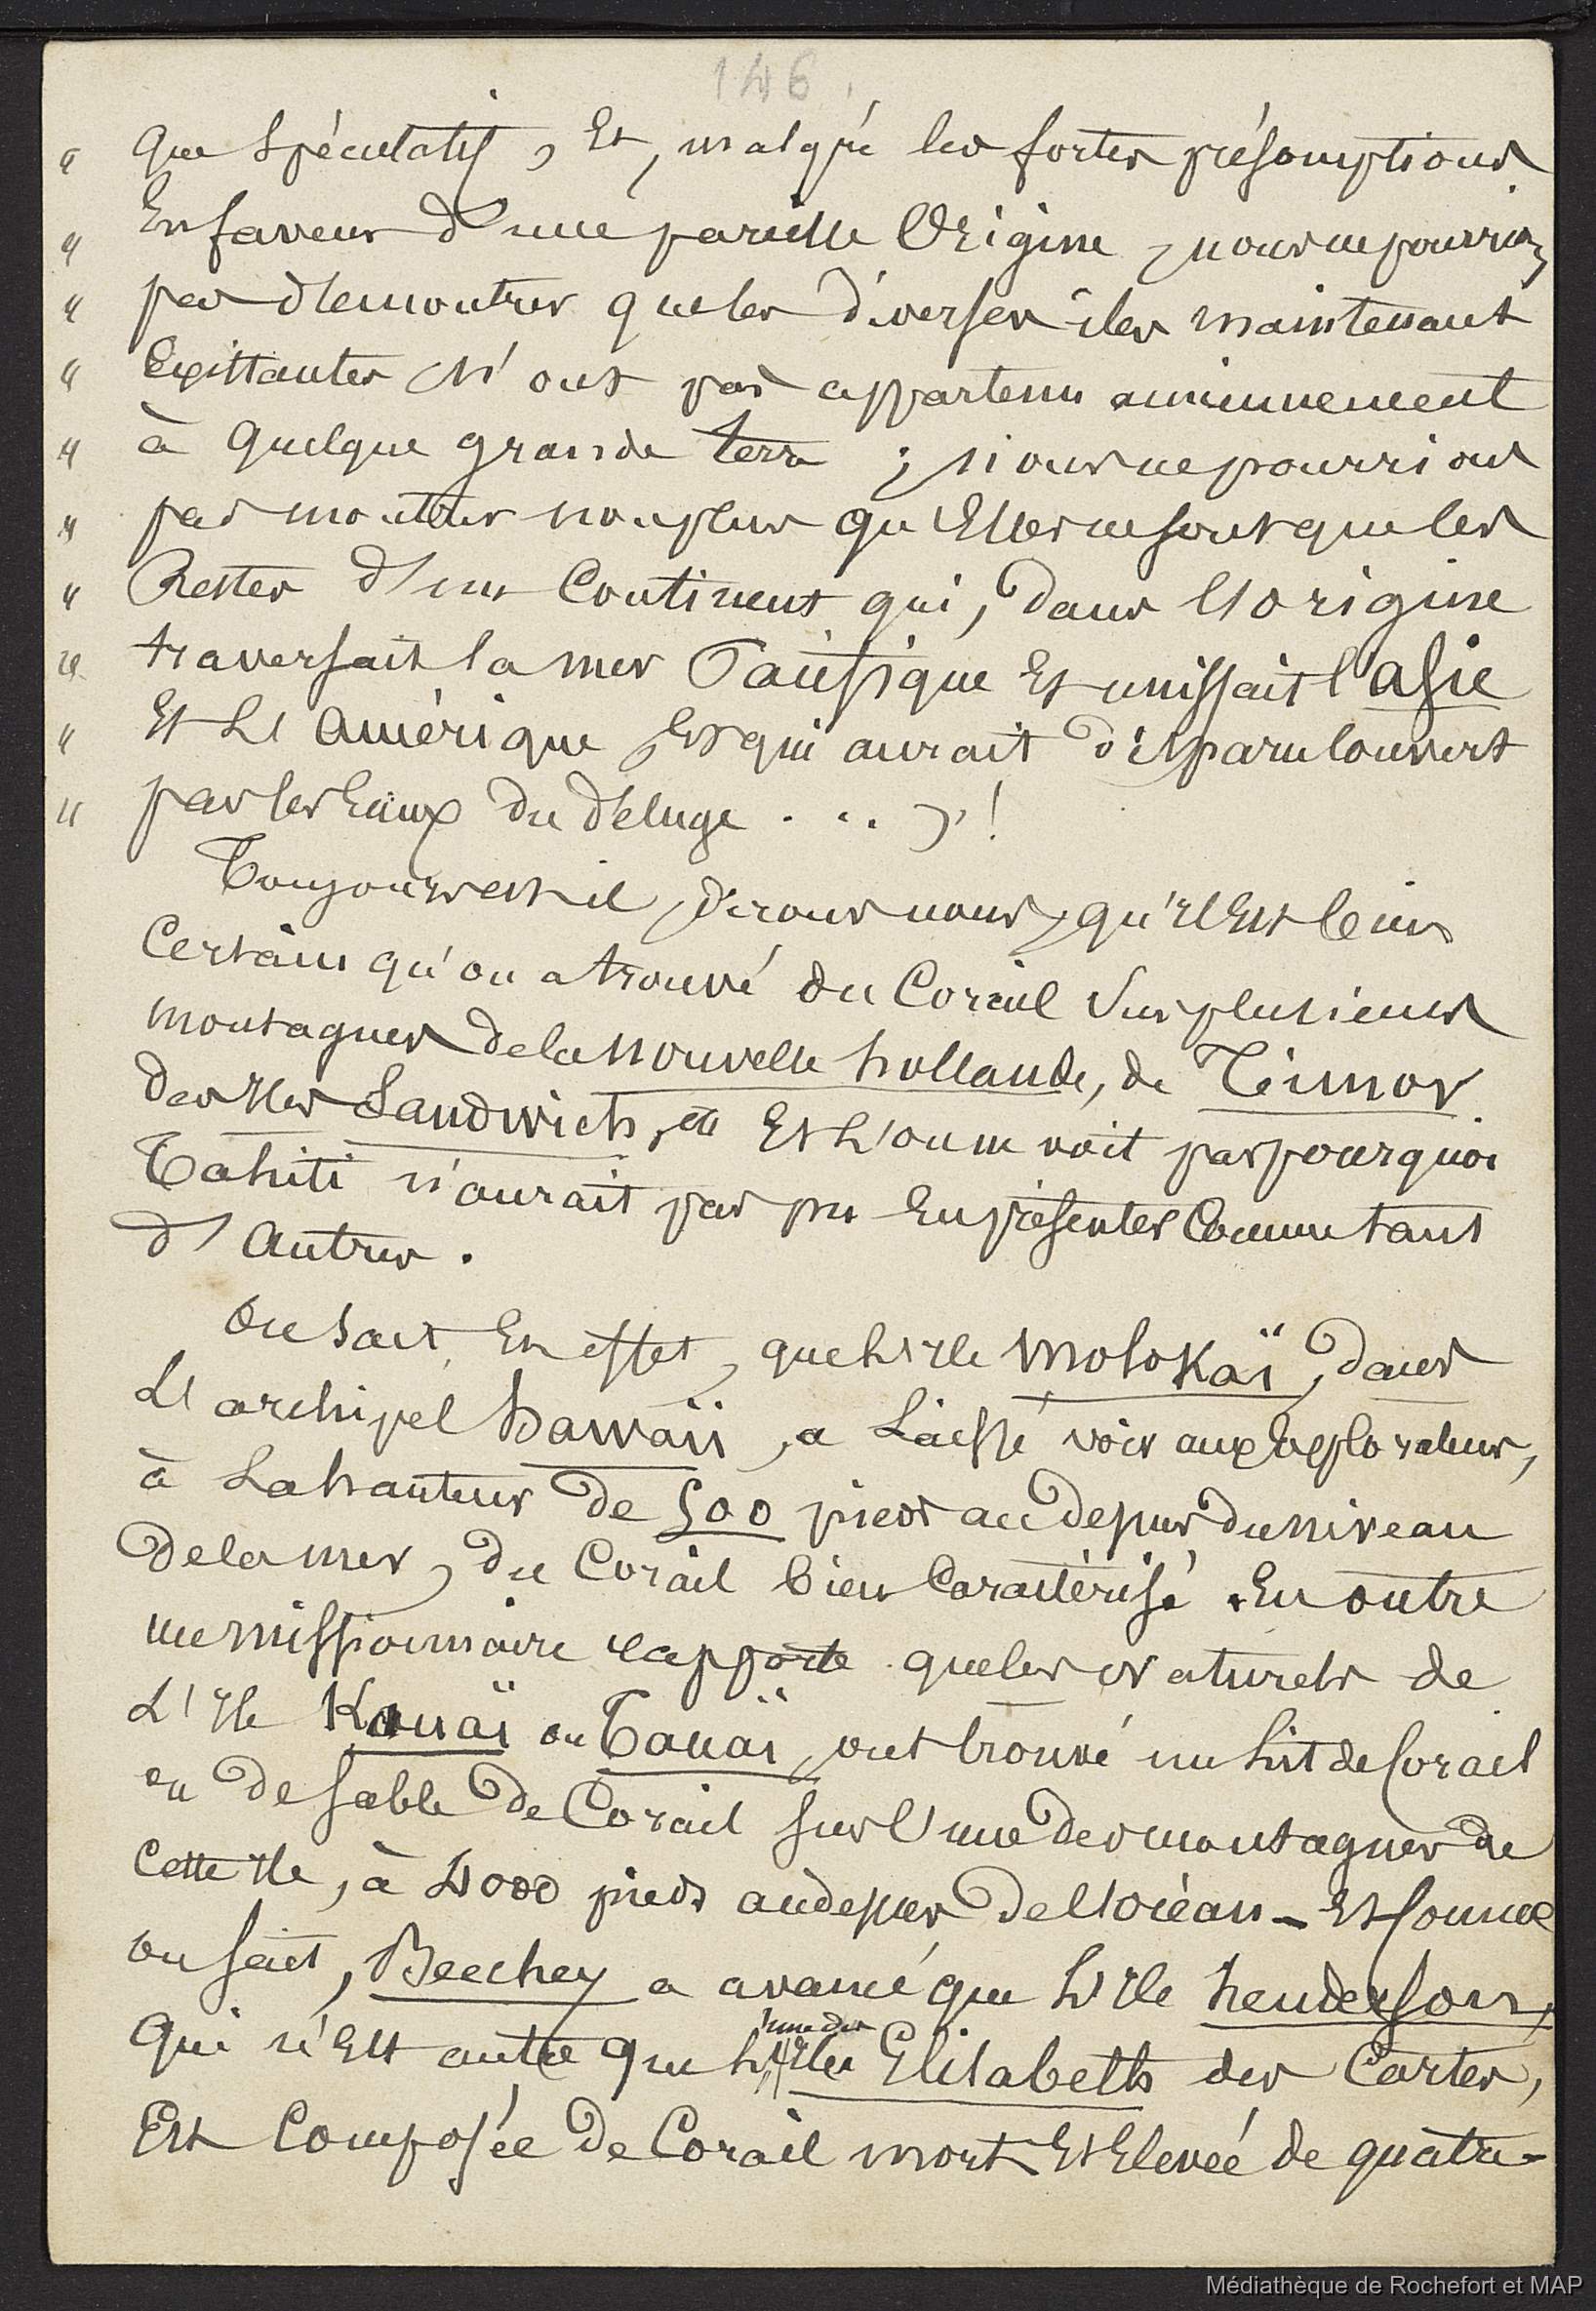 146.
" que spéculatif, Et, malgré les fortes présomptions
" En faveur d'une pareille Origine, nous ne pourrions
" pas démontrer que les diverses iles maintenant
" Existantes N'ont pas appartenu anciennement
" à quelque grande terre ; nous ne pourrions
" pas montrer non plus qu'Elles ne sont que les
" Restes d'un Continent qui, dans l'origine
" traversait la mer Pacifique Et unissait l'asie
" Et L'amérique, Et qui aurait disparu couvert
" par les Eaux du déluge . . . » !
Toujours est-il, dirons nous, qu'il Est bien
Certain qu'on a trouvé du Corail sur plusieurs
montagnes de la nouvelle hollande, de Timor
des Iles Sandwich, etc Et L'on ne voit pas pourquoi
Tahiti n'aurait pas pu En présenter Comme tant
d'Autres.
On sait, En effet, que L'Ile Molokaï, dans
L'archipel hawaii, a Laissé voir aux Explorateurs,
à La hauteur de 500 pieds au dessus du niveau
De la mer, du Corail bien Caractérisé. En outre
un missionnaire rapporte que les naturels de
L'Ile Kauaï ou Tauaï, ont trouvé un Lit de Corail
ou de sable de Corail sur l'une des montagnes de
Cette Ile, à 4000 pieds au dessus de l'océan - Et Comme
on sait, Beechey a avancé que L'Ile henderson,
qui n'Est autre que l'une des Iles Elisabeth des Cartes,
Est Composée de Corail mort Et Elevée de quatre-
Médiathèque de Rochefort et MAP